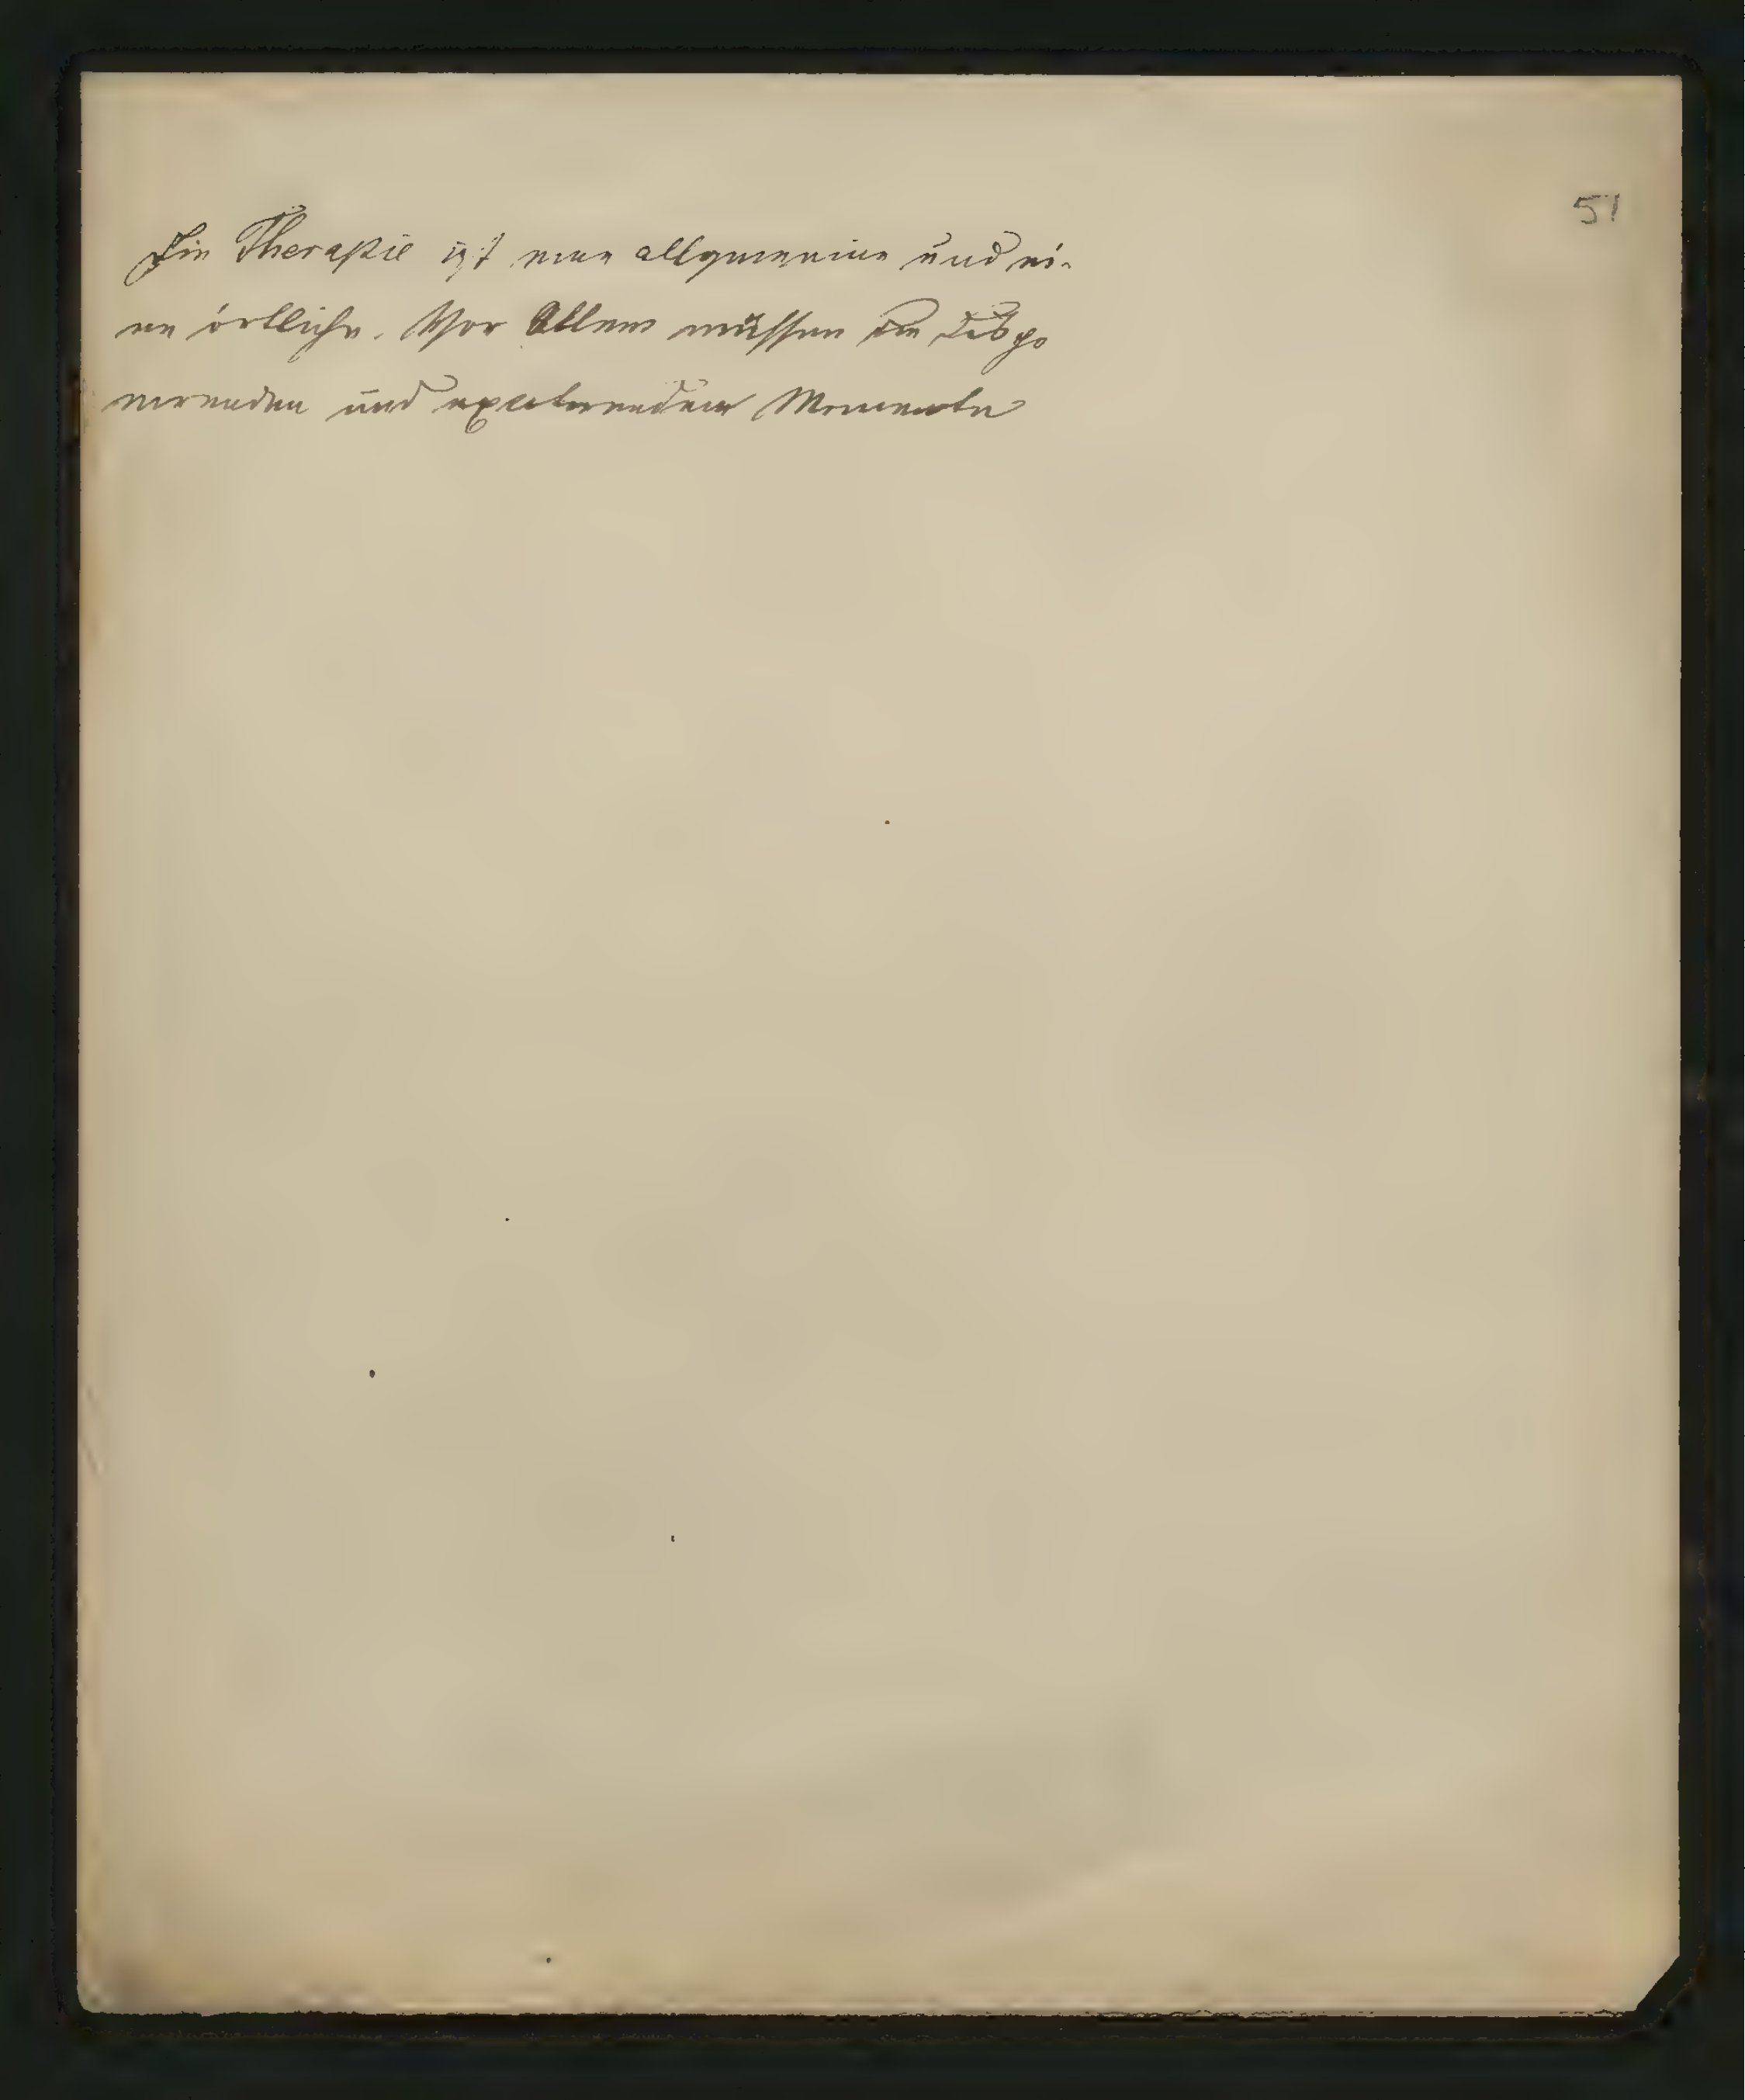 51
Die Therapie ist eine allgemeine und ei-
ne örtliche. Vor Allem müssen die dispo
nirenden und excitirenden Momente